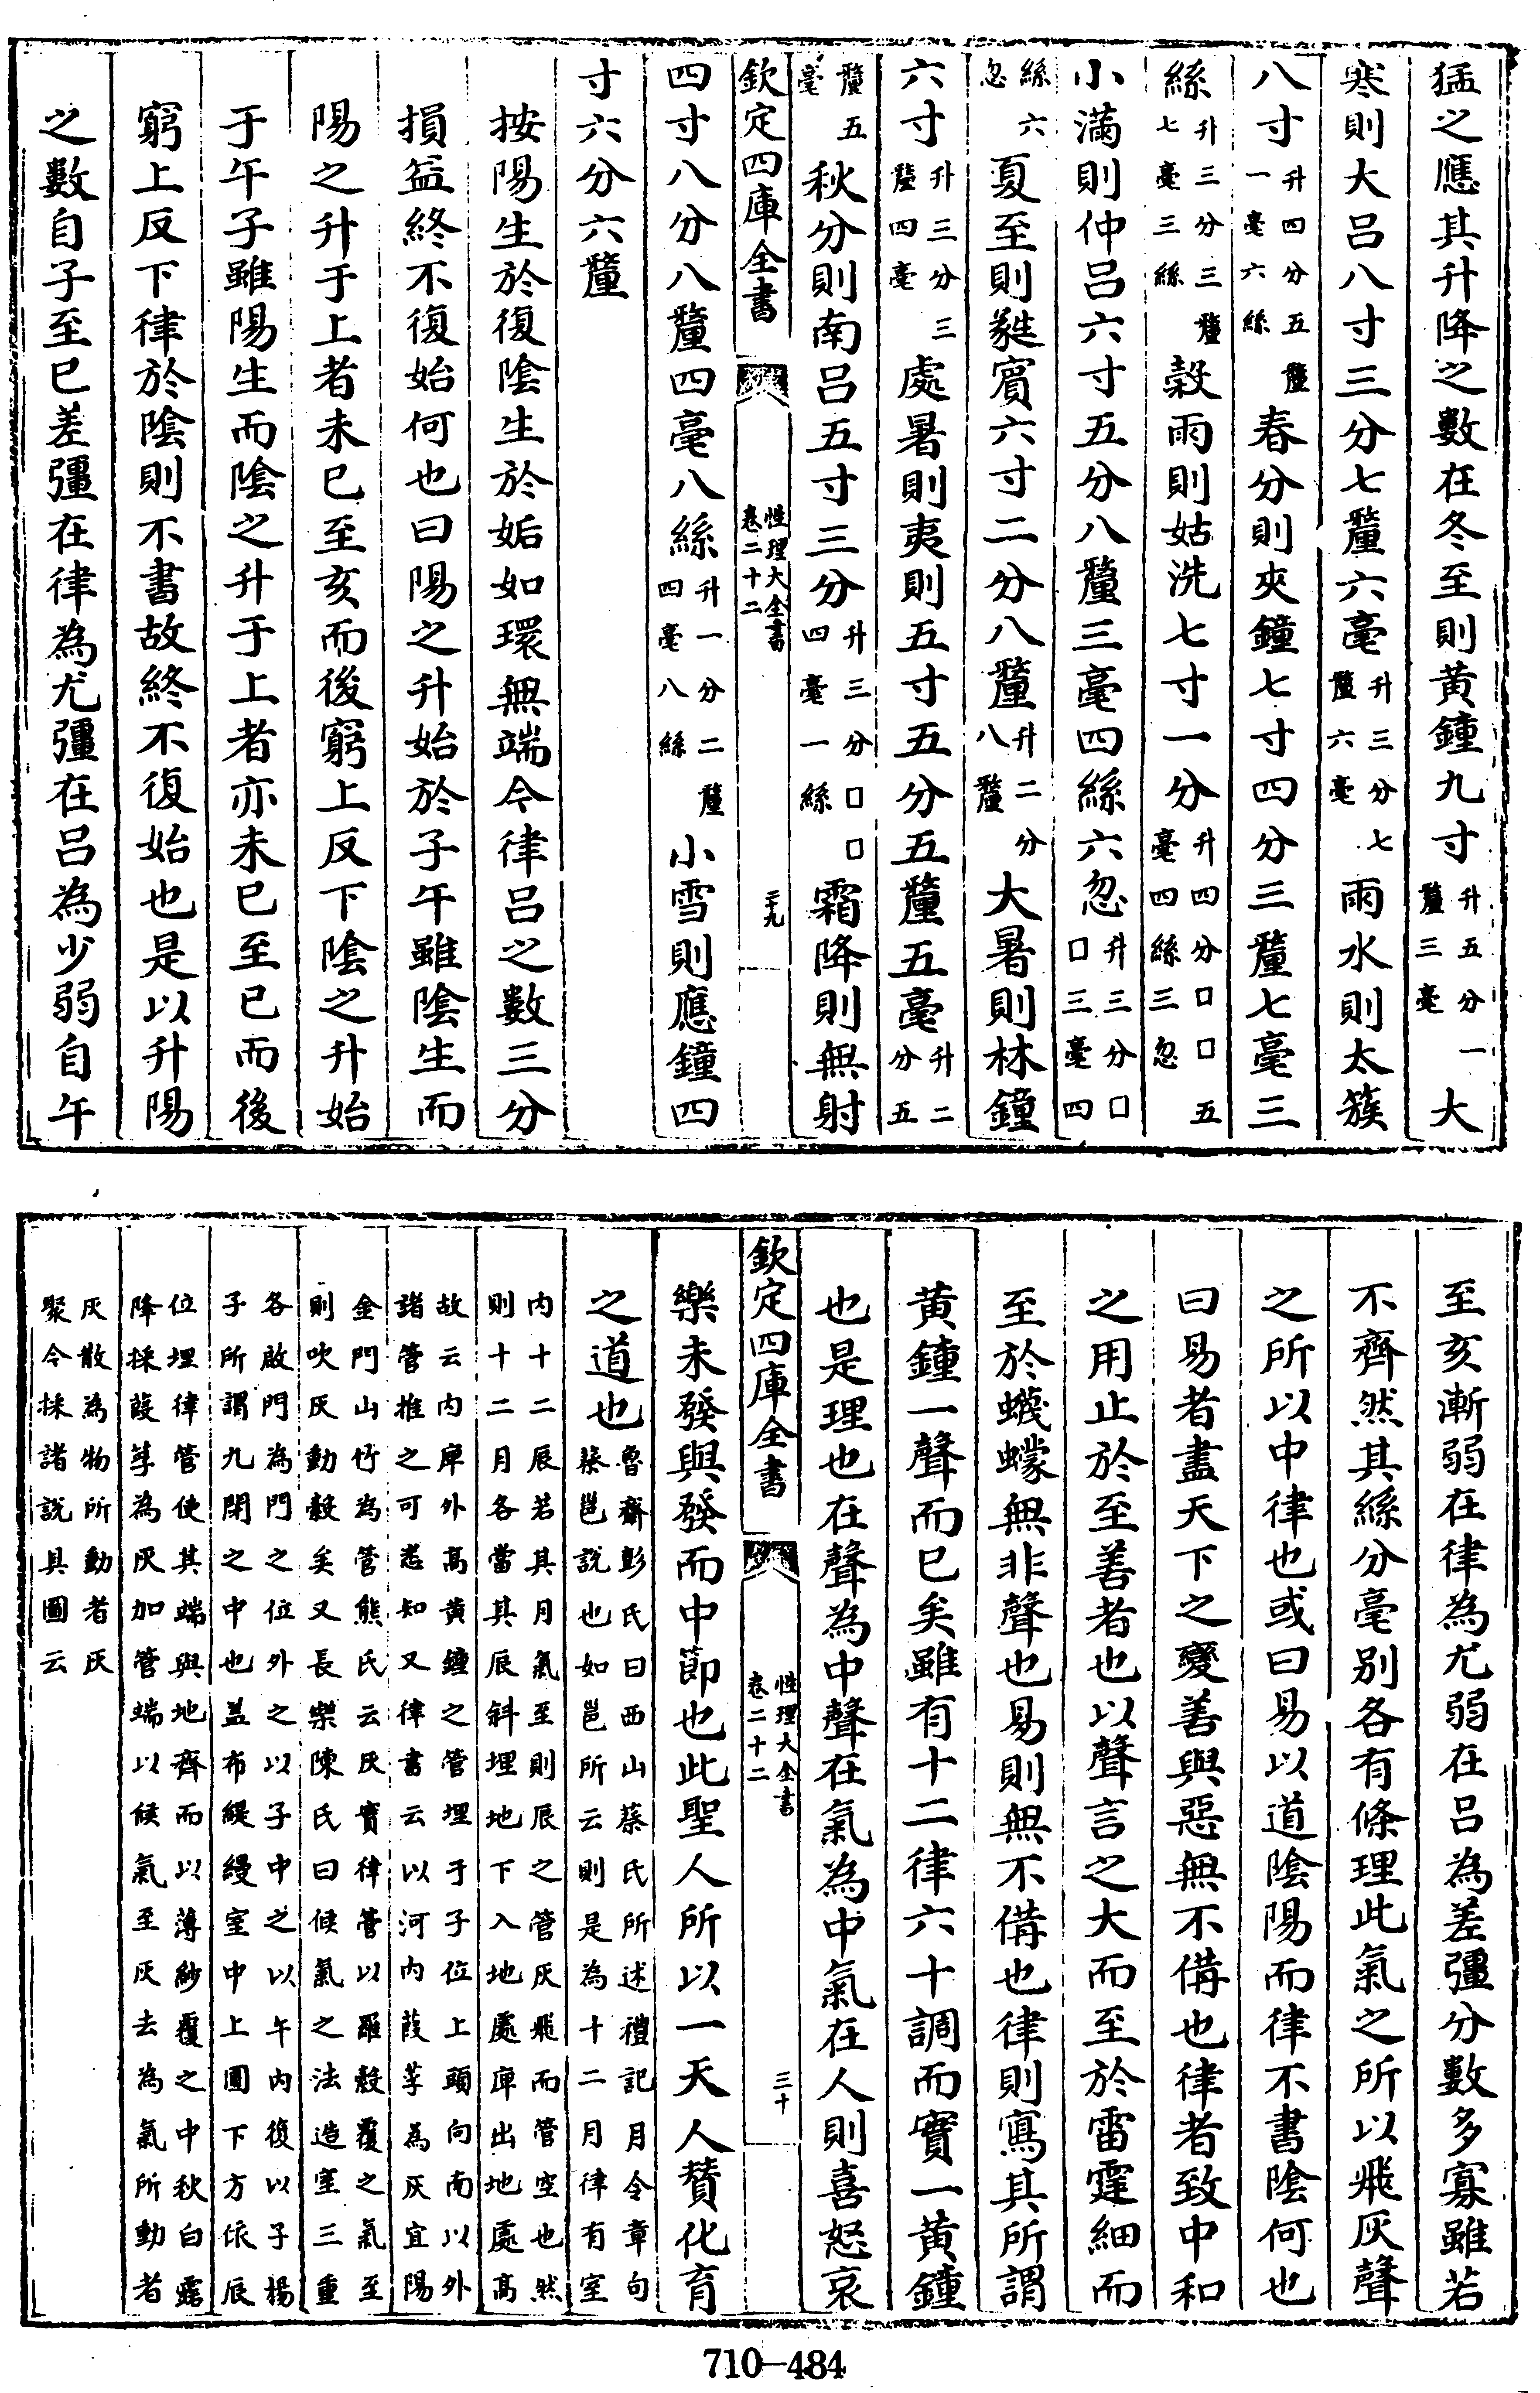 猛之應其升降之數在冬至則黄鐘九寸升五分一釐三毫大
寒則大吕八寸三分七釐六毫升三分七釐六毫雨水則太簇
八寸升四分五釐一毫六絲春分則夾鐘七寸四分三釐七毫三
絲升三分三釐七毫三絲穀雨則姑洗七寸一分升四分□□五毫四絲三忽
小滿則仲吕六寸五分八釐三毫四絲六忽升三分□□三毫四
絲六忽夏至則蕤賓六寸二分八釐升二分八釐大暑則林鐘
六寸升三分三釐四毫處暑則夷則五寸五分五釐五毫升二分五
釐五毫秋分則南吕五寸三分升三分□□四毫一絲霜降則無射
欽定四庫全書
性理大全書
卷二十二
二十九
四寸八分八釐四毫八絲升一分二釐四毫八絲小雪則應鐘四
寸六分六釐
按陽生於復陰生於姤如環無端今律吕之數三分
損益終不復始何也曰陽之升始於子午雖陰生而
陽之升于上者未已至亥而後窮上反下陰之升始
于午子雖陽生而陰之升于上者亦未已至已而後
窮上反下律於陰則不書故終不復始也是以升陽
之數自子至已差彊在律為尤彊在吕為少弱自午
至亥漸弱在律為尤弱在吕為差彊分數多寡雖若
不齊然其絲分毫别各有條理此氣之所以飛灰聲
之所以中律也或曰易以道陰陽而律不書陰何也
曰易者盡天下之變善與惡無不備也律者致中和
之用止於至善者也以聲言之大而至於雷霆細而
至於蠛蠓無非聲也易則無不備也律則寫其所謂
黄鐘一聲而已矣雖有十二律六十調而實一黄鐘
也是理也在聲為中聲在氣為中氣在人則喜怒哀
欽定四庫全書
性理大全書
卷二十二
三十
樂未發與發而中節也此聖人所以一天人贊化育
之道也魯齋彭氏曰西山蔡氏所述禮記月令章句蔡邕説也如邕所云則是為十二月律有室
内十二辰若其月氣至則辰之管灰飛而管空也然則十二月各當其辰斜埋地下入地處庳出地處高
故云内庳外高黄鐘之管埋于子位上頭向南以外諸管推之可悉知又律書云以河内葭莩為灰宜陽
金門山竹為管熊氏云灰實律管以羅縠覆之氣至則吹灰動縠矣又長樂陳氏曰候氣之法造室三重
各啟門為門之位外之以子中之以午内復以子楊子所謂九閉之中也盖布緹縵室中上圓下方依辰
位埋律管使其端與地齊而以薄紗覆之中秋白露降採葭莩為灰加管端以候氣至灰去為氣所動者
灰散為物所動者灰聚今採諸説具圖云
710—484